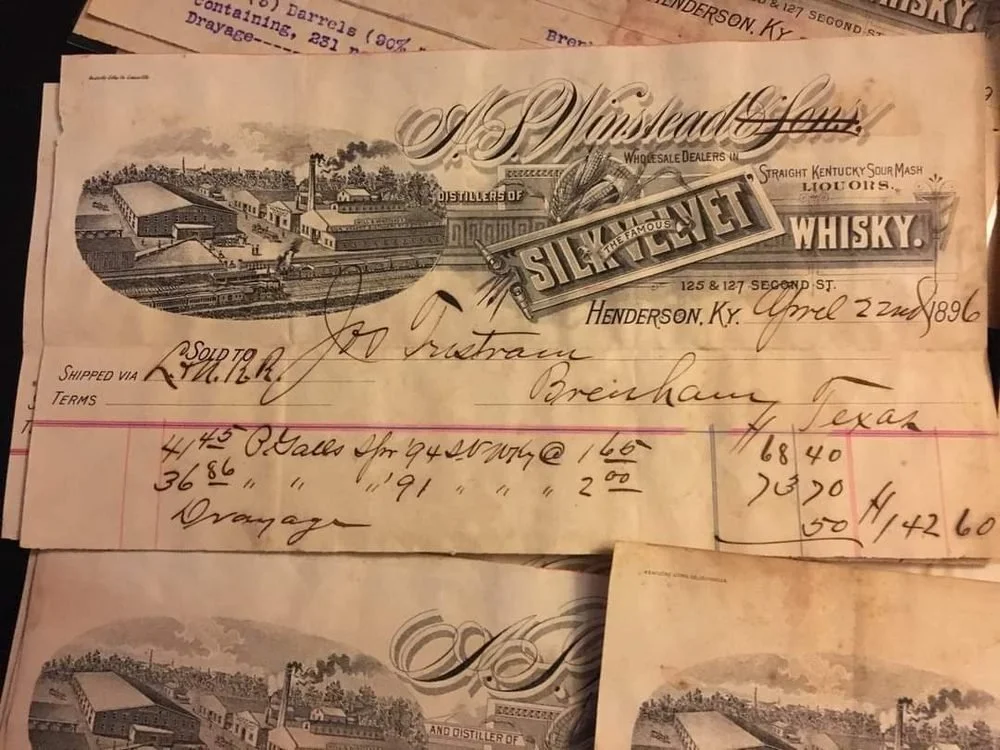 (5) Barrels (90%
Containing, 231
Drayage-----
Bren
HENDERSON, KY.
& 127 SECOND ST.
HISKY.
A. S. Winstead & Sons.
WHOLESALE DEALERS IN
STRAIGHT KENTUCKY SOUR MASH
LIQUORS.
DISTILLERS OF
THE FAMOUS
SILK VELVET
WHISKY.
125 & 127 SECOND ST.
HENDERSON, KY. April 22nd 1896
SOLD TO Jno Tristram
SHIPPED VIA L & N. R.R.
Brenham Texas
TERMS
41 45 P Galls Spr '94 SV Why @ 1 65 68 40
36 86 " " " '91 " " " 2 00 73 70
Drayage 50 142 60
A. S.
AND DISTILLER OF